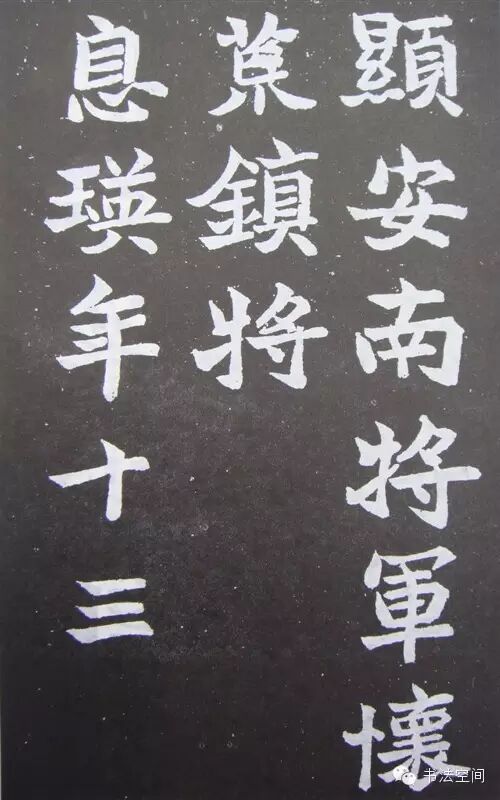 顯安南將軍懷
荒鎮將
息瑛年十三
书法空间